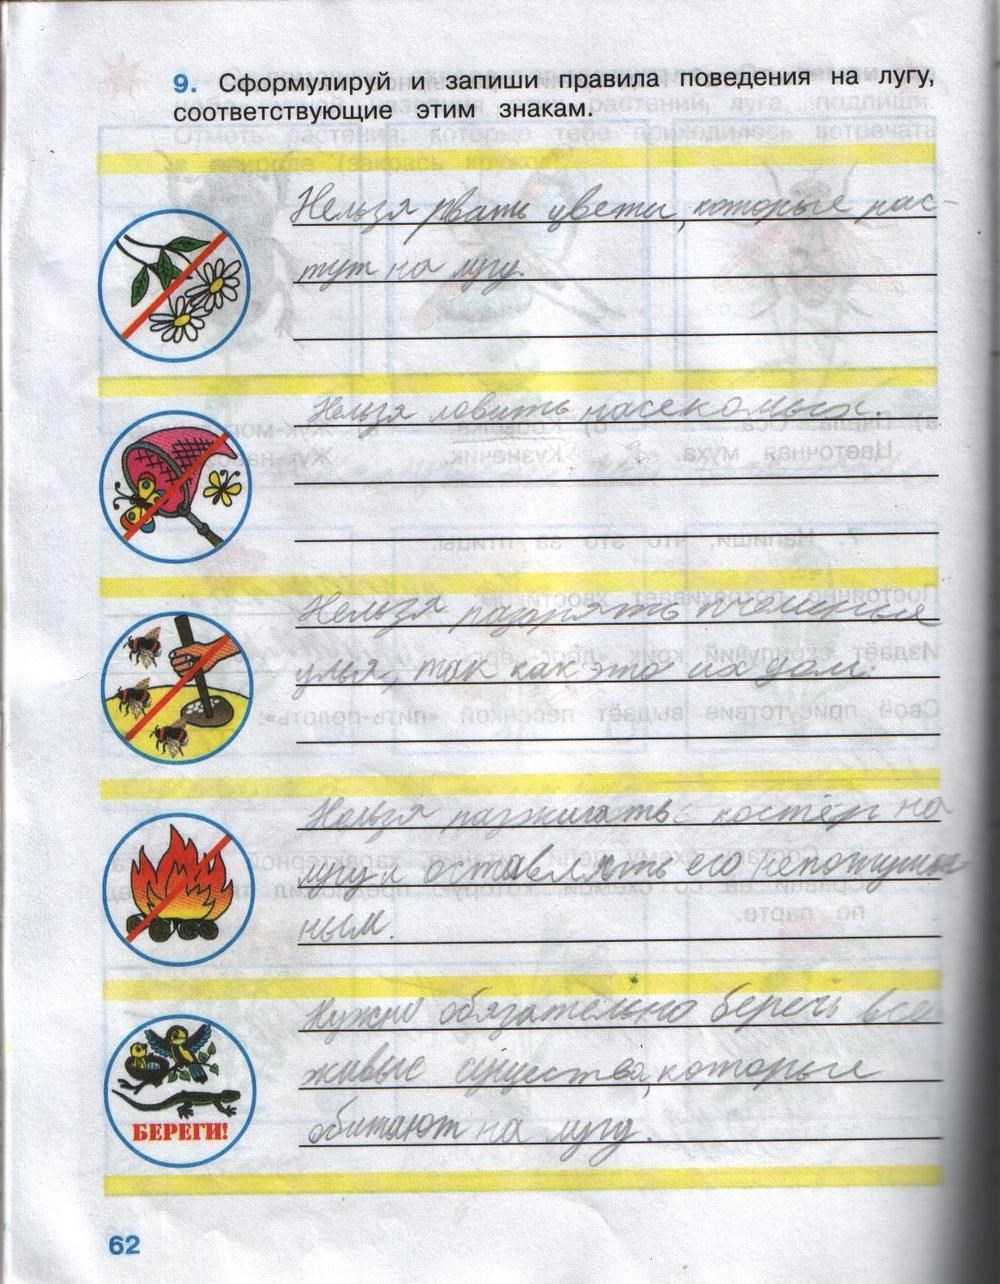 9. Сформулируй и запиши правила поведения на лугу,
соответствующие этим знакам.
Нельзя рвать цветы, которые рас-
тут на лугу.
Нельзя ловить насекомых.
Нельзя разорять пчелиные
улья, так как это их дом.
Нельзя разжигать костёр на
лугу и оставлять его
ным.
Нужно обязательно беречь все
живые существа, которые
обитают на лугу.
БЕРЕГИ!
62